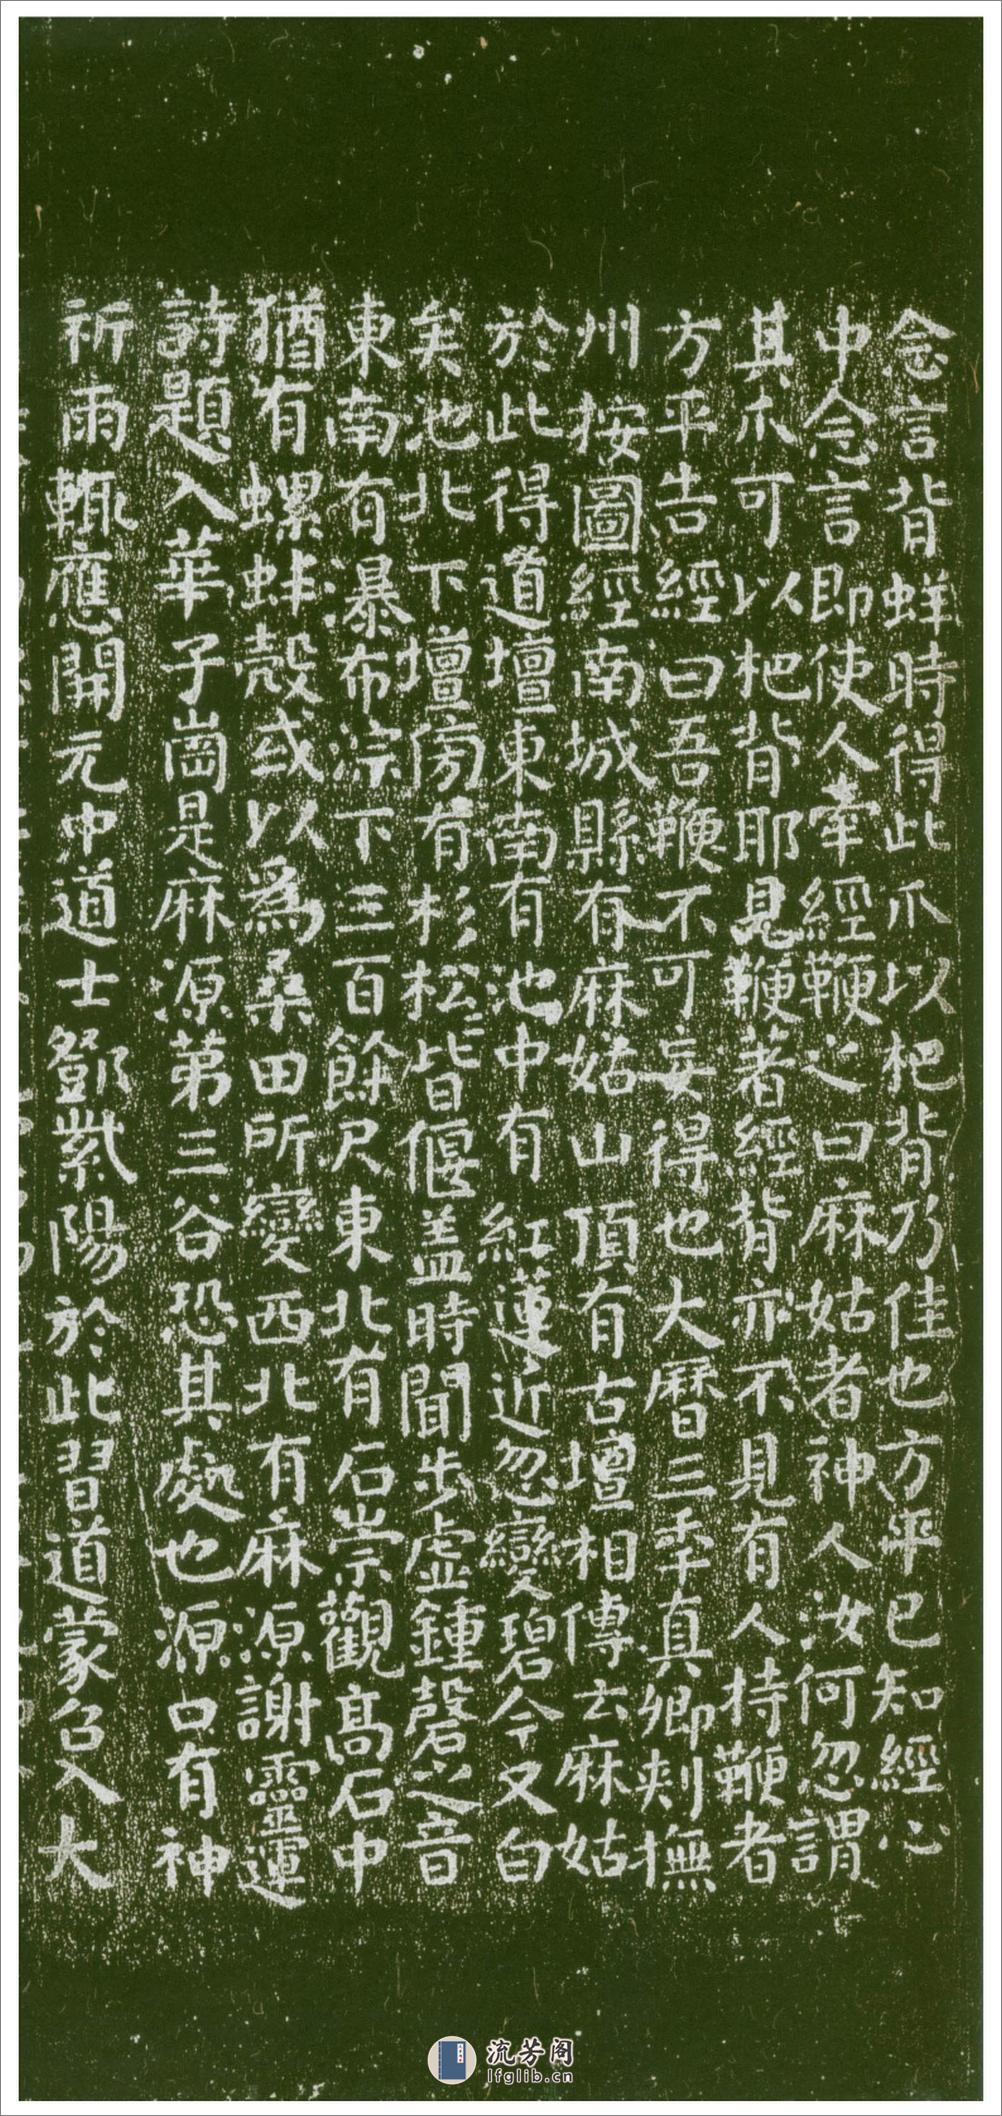 念言背蛘時得此爪以杷背乃佳也方平已知經心
中念言即使人牽經鞭之曰麻姑者神人汝何忽謂
其爪可以杷背耶見鞭著經背亦不見有人持鞭者
方平告經曰吾鞭不可妄得也大曆三年真卿刺撫
州按圖經南城縣有麻姑山頂有古壇相傳云麻姑
於此得道壇東南有池中有紅蓮近忽變碧今又白
矣池北下壇傍有杉松皆偃盖時聞步虛鍾磬之音
東南有暴布淙下三百餘尺東北有石崇觀高石中
猶有螺蚌殼或以為桑田所變西北有麻源謝靈運
詩題入華子崗是麻源第三谷恐其處也源口有神
祈雨輒應開元中道士鄧紫陽於此習道蒙召入大
流芳阁
lfglib.cn